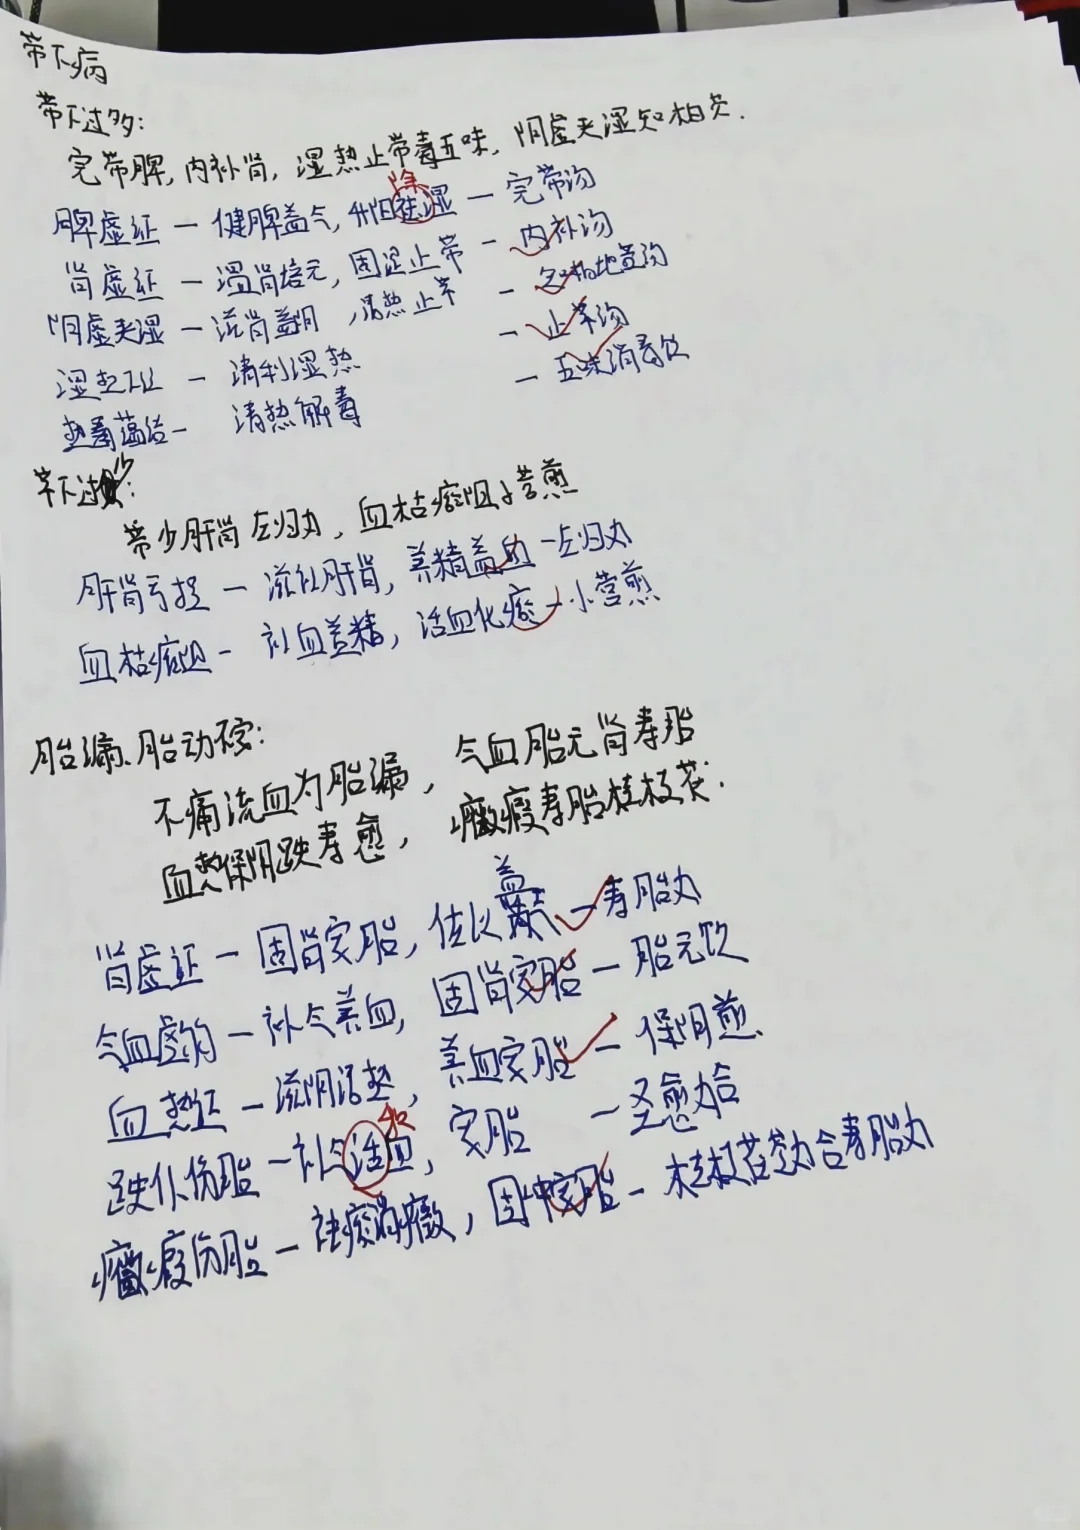 带下病
带下过多:
完带脾,内补肾,湿热止带毒五味,阴虚夹湿知柏
脾虚证 — 健脾益气,升阳祛湿 — 完带汤
除
肾虚证 — 温肾培元,固涩止带 — 内补汤
阴虚夹湿 — 滋肾益阴,清热止带 — 知柏地黄汤
湿热证 — 清利湿热 — 止带汤
热毒蕴结 — 清热解毒 — 五味消毒饮
带下过少:
带少肝肾左归丸,血枯瘀阻小营煎
肝肾亏损 — 滋补肝肾,养精益血 — 左归丸
血枯瘀阻 — 补血益精,活血化瘀 — 小营煎
胎漏、胎动不安:
不痛流血为胎漏,气血胎元肾寿胎
血热保阴跌寿愈,癥瘕寿胎桂枝茯:
肾虚证 — 固肾安胎,佐以益气 — 寿胎丸
气血虚弱 — 补气养血,固肾安胎 — 胎元饮
血热证 — 滋阴清热,养血安胎 — 保阴煎
和
跌仆伤胎 — 补气活血,安胎 — 圣愈合
癥瘕伤胎 — 祛瘀消癥,固冲安胎 — 桂枝茯苓丸合寿胎丸